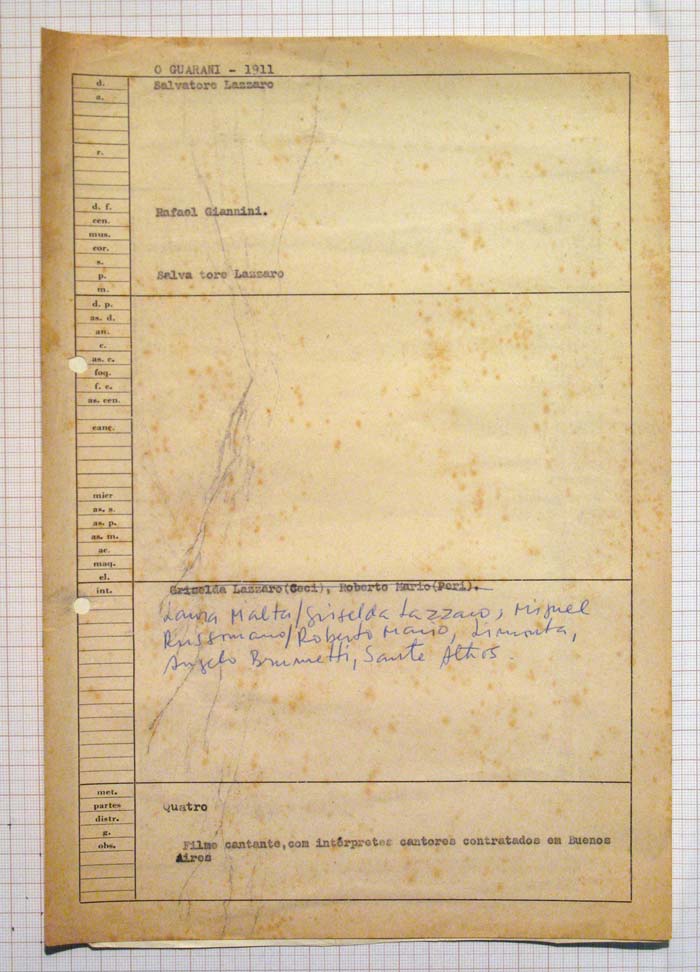 O GUARANI - 1911
d. Salvatore Lazzaro
a.
r.
d. f. Rafael Giannini.
cen.
mus.
cor.
s.
p. Salva tore Lazzaro
m.
d. p.
as. d.
an.
c.
as. c.
foq.
f. c.
as. cen.
canç.
mier
as. s.
as. p.
as. m.
ac.
maq.
el.
int. Griselda Lazzaro(Ceci), Roberto Mario(Peri).
Laura Malta/Griselda Lazzaro, Miguel
Russomano/Roberto Mario, Limonta,
Angelo Brunetti, Sante Athos.
met.
partes Quatro
distr.
g.
obs. Filme cantante,com intérpretes cantores contratados em Buenos
Aires